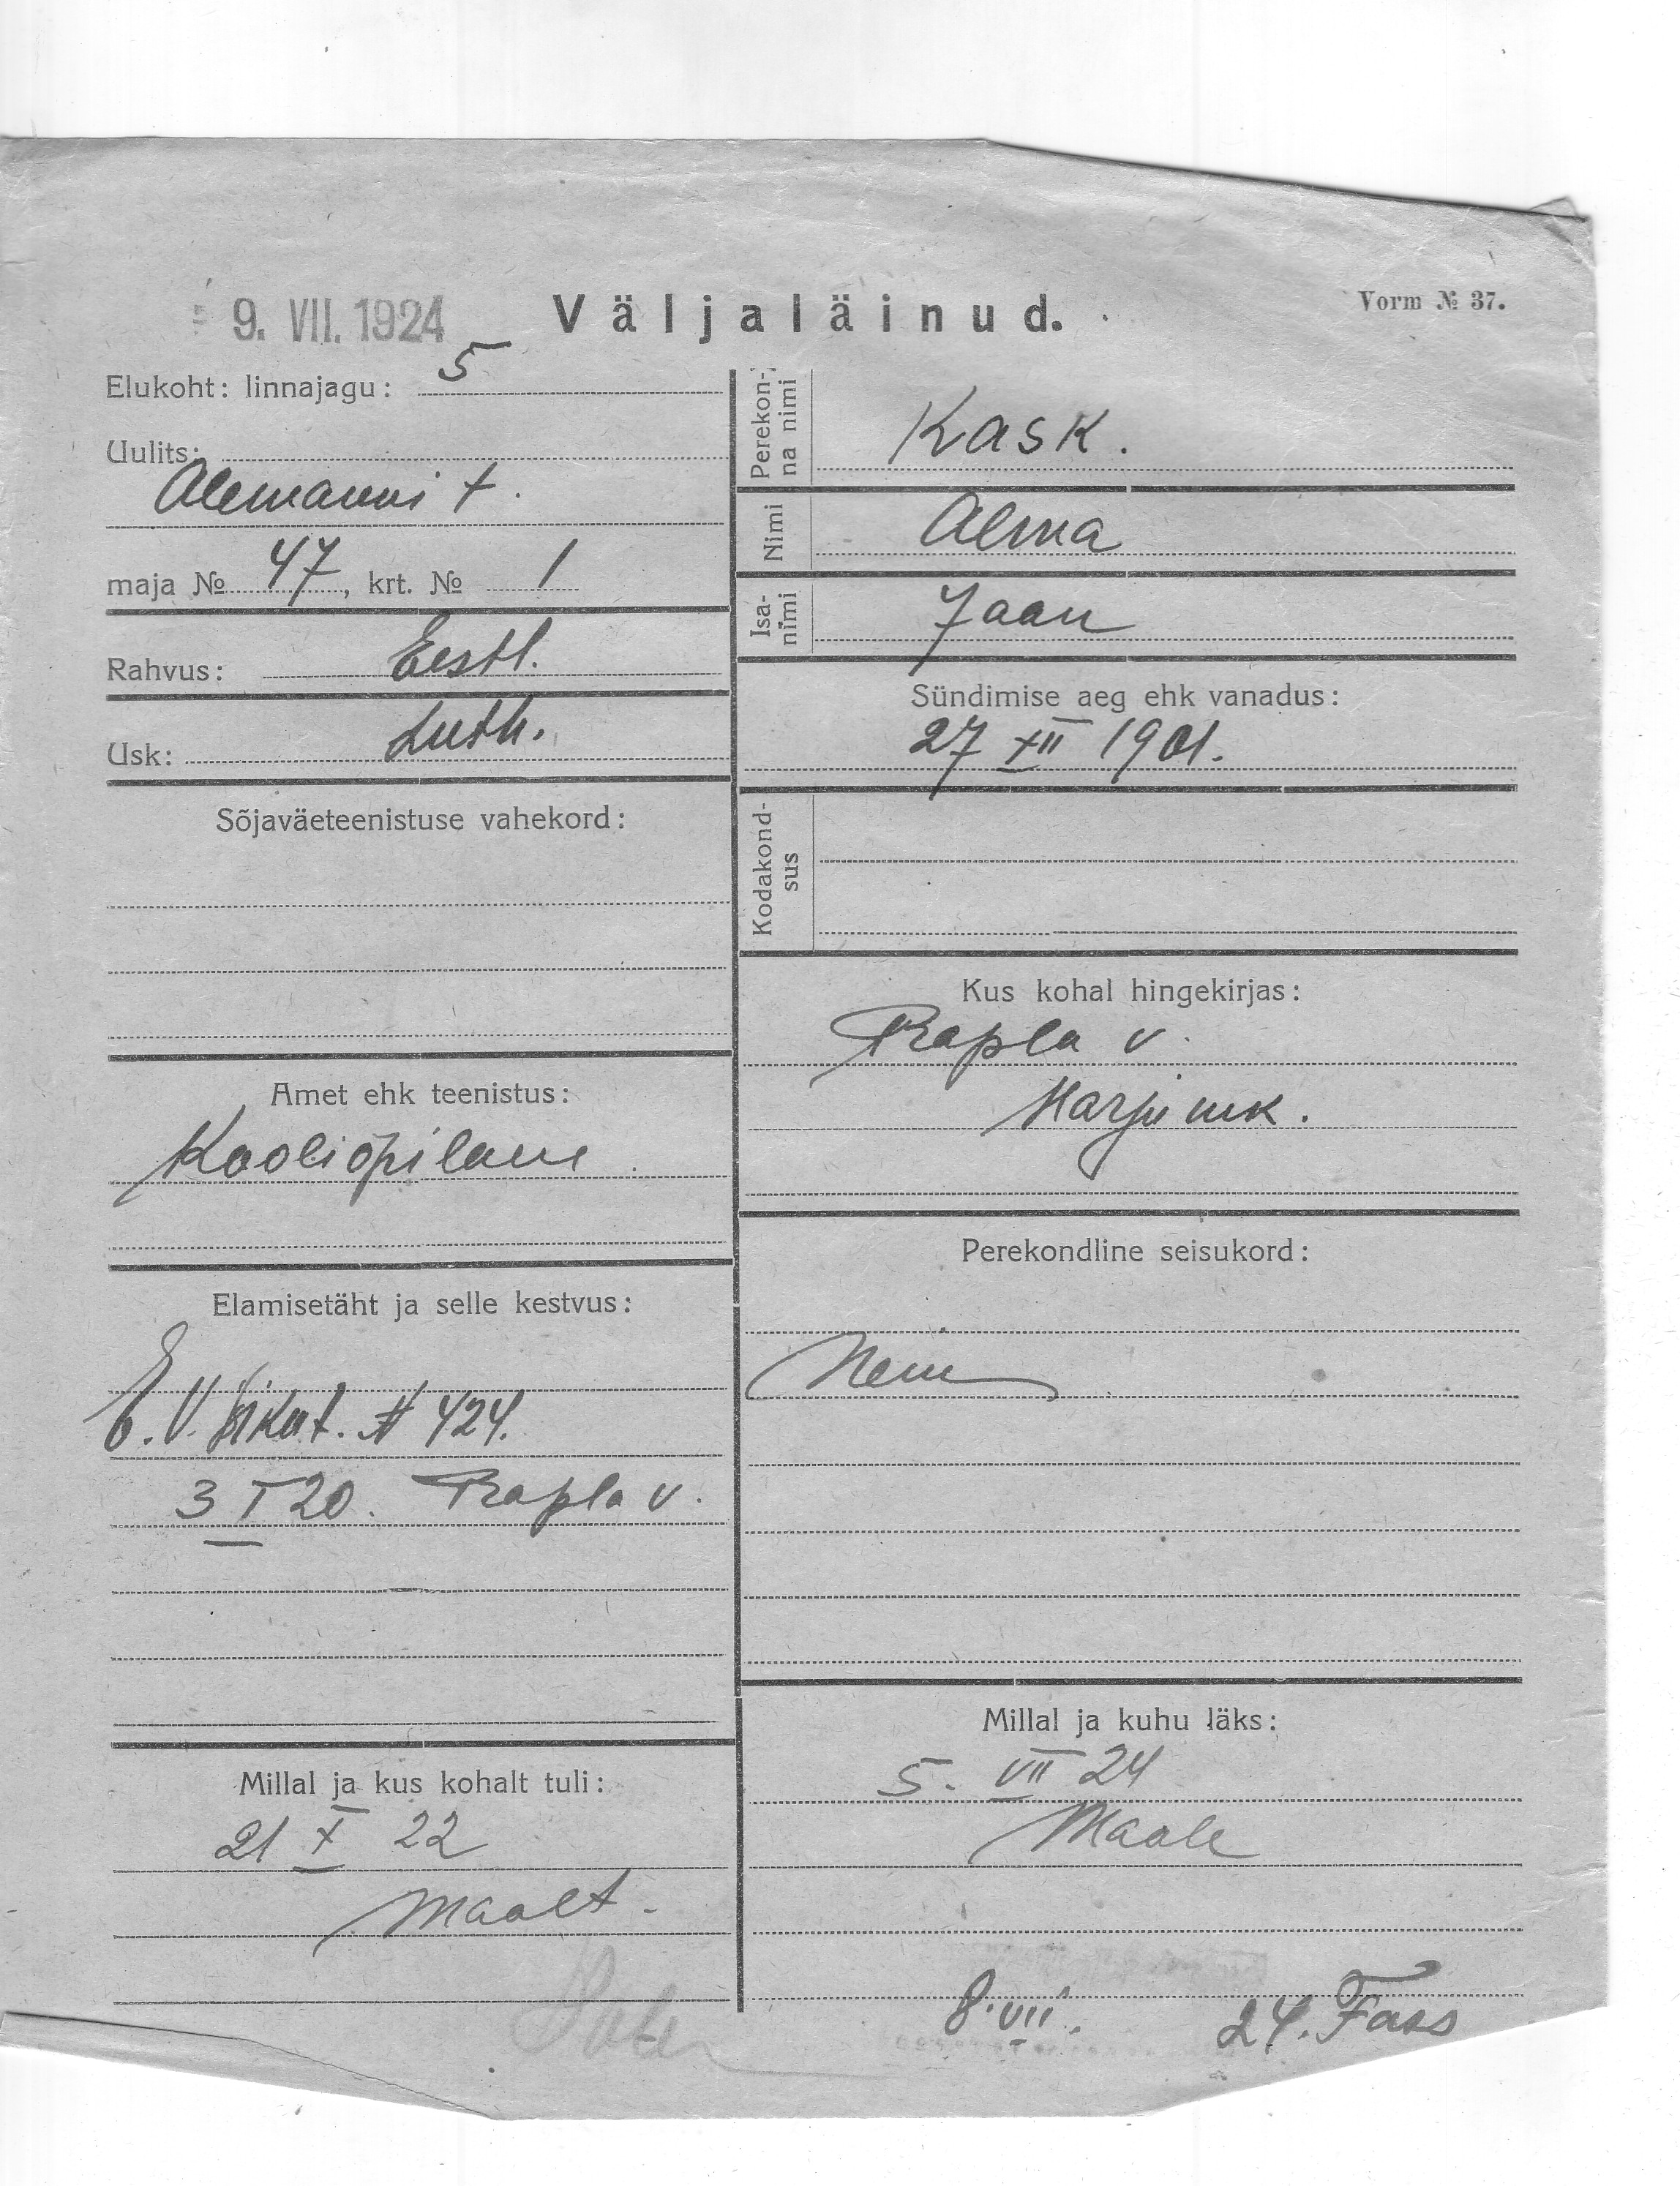 9. VII. 1924
Väljaläinud.
Vorm № 37.
Elukoht: linnajagu: 5
Uulits:
Alemanni t.
maja № 47, krt. № 1
Rahvus: Eestl.
Usk: Luth.
Sõjaväeteenistuse vahekord:
Amet ehk teenistus:
Kooliõpilane
Elamisetäht ja selle kestvus:
E. V. № 424.
3 I 20. Rapla v.
Millal ja kus kohalt tuli:
21 X 22
Maalt.
Perekon-
na nimi
Kask.
Nimi
Alma
Isa-
nimi
Jaan
Sündimise aeg ehk vanadus:
27 XII 1901.
Kodakond-
sus
Kus kohal hingekirjas:
Rapla v.
Harju mk.
Perekondline seisukord:
Millal ja kuhu läks:
5. VII 24
Maale
8. VII. 24.